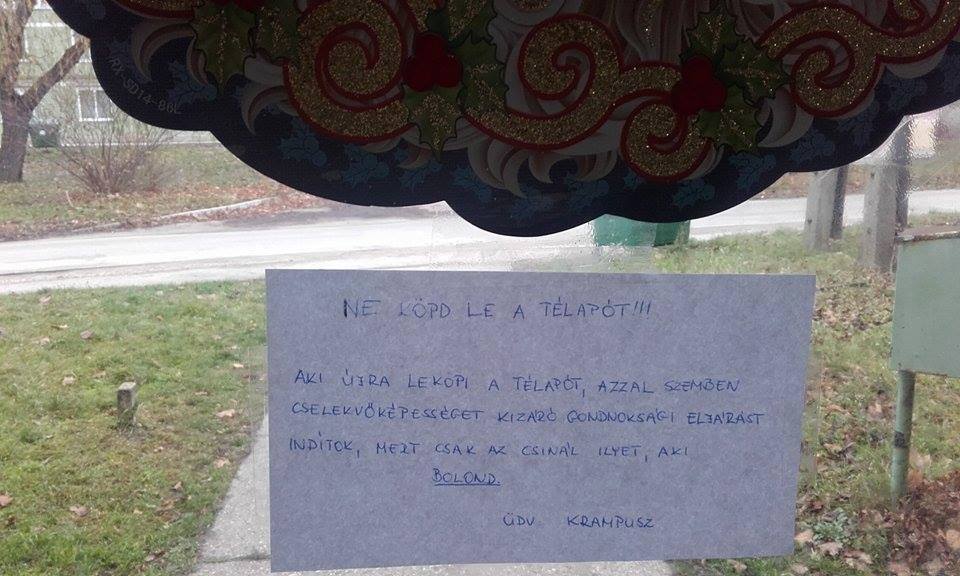 RX-SD14-86L
NE KÖPD LE A TÉLAPÓT!!!
AKI ÚJRA LEKÖPI A TÉLAPÓT, AZZAL SZEMBEN
CSELEKVŐKÉPESSÉGET KIZÁRÓ GONDNOKSÁGI ELJÁRÁST
INDÍTOK, MERT CSAK AZ CSINÁL ILYET, AKI
BOLOND.
ÜDV KRAMPUSZ